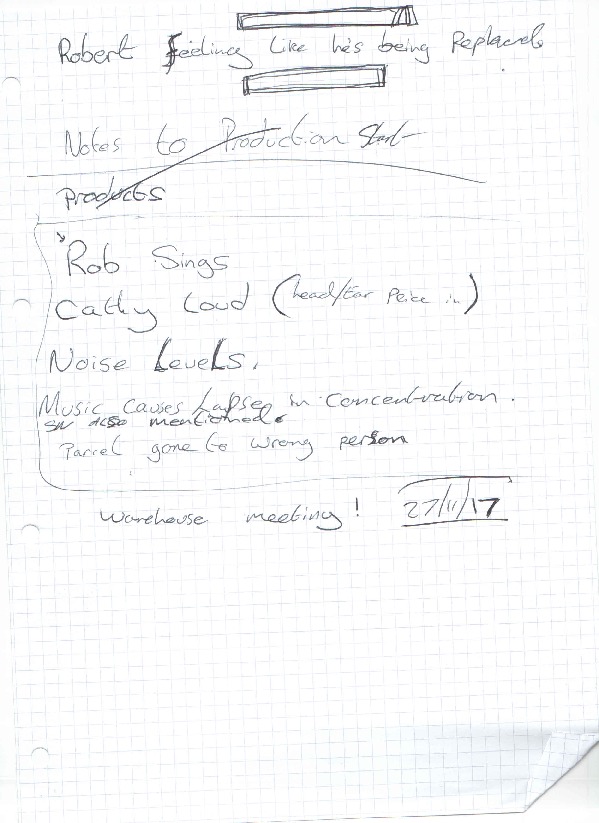 Robert Feeling Like he's being Replaced
Notes to Production Start
Products
Rob Sings
Cathy Loud (head/Ear Peice in)
Noise Levels.
Music causes Lapses in concentration.
SN Also mentioned.
Parcel gone to wrong person
Warehouse meeting! 27/11/17